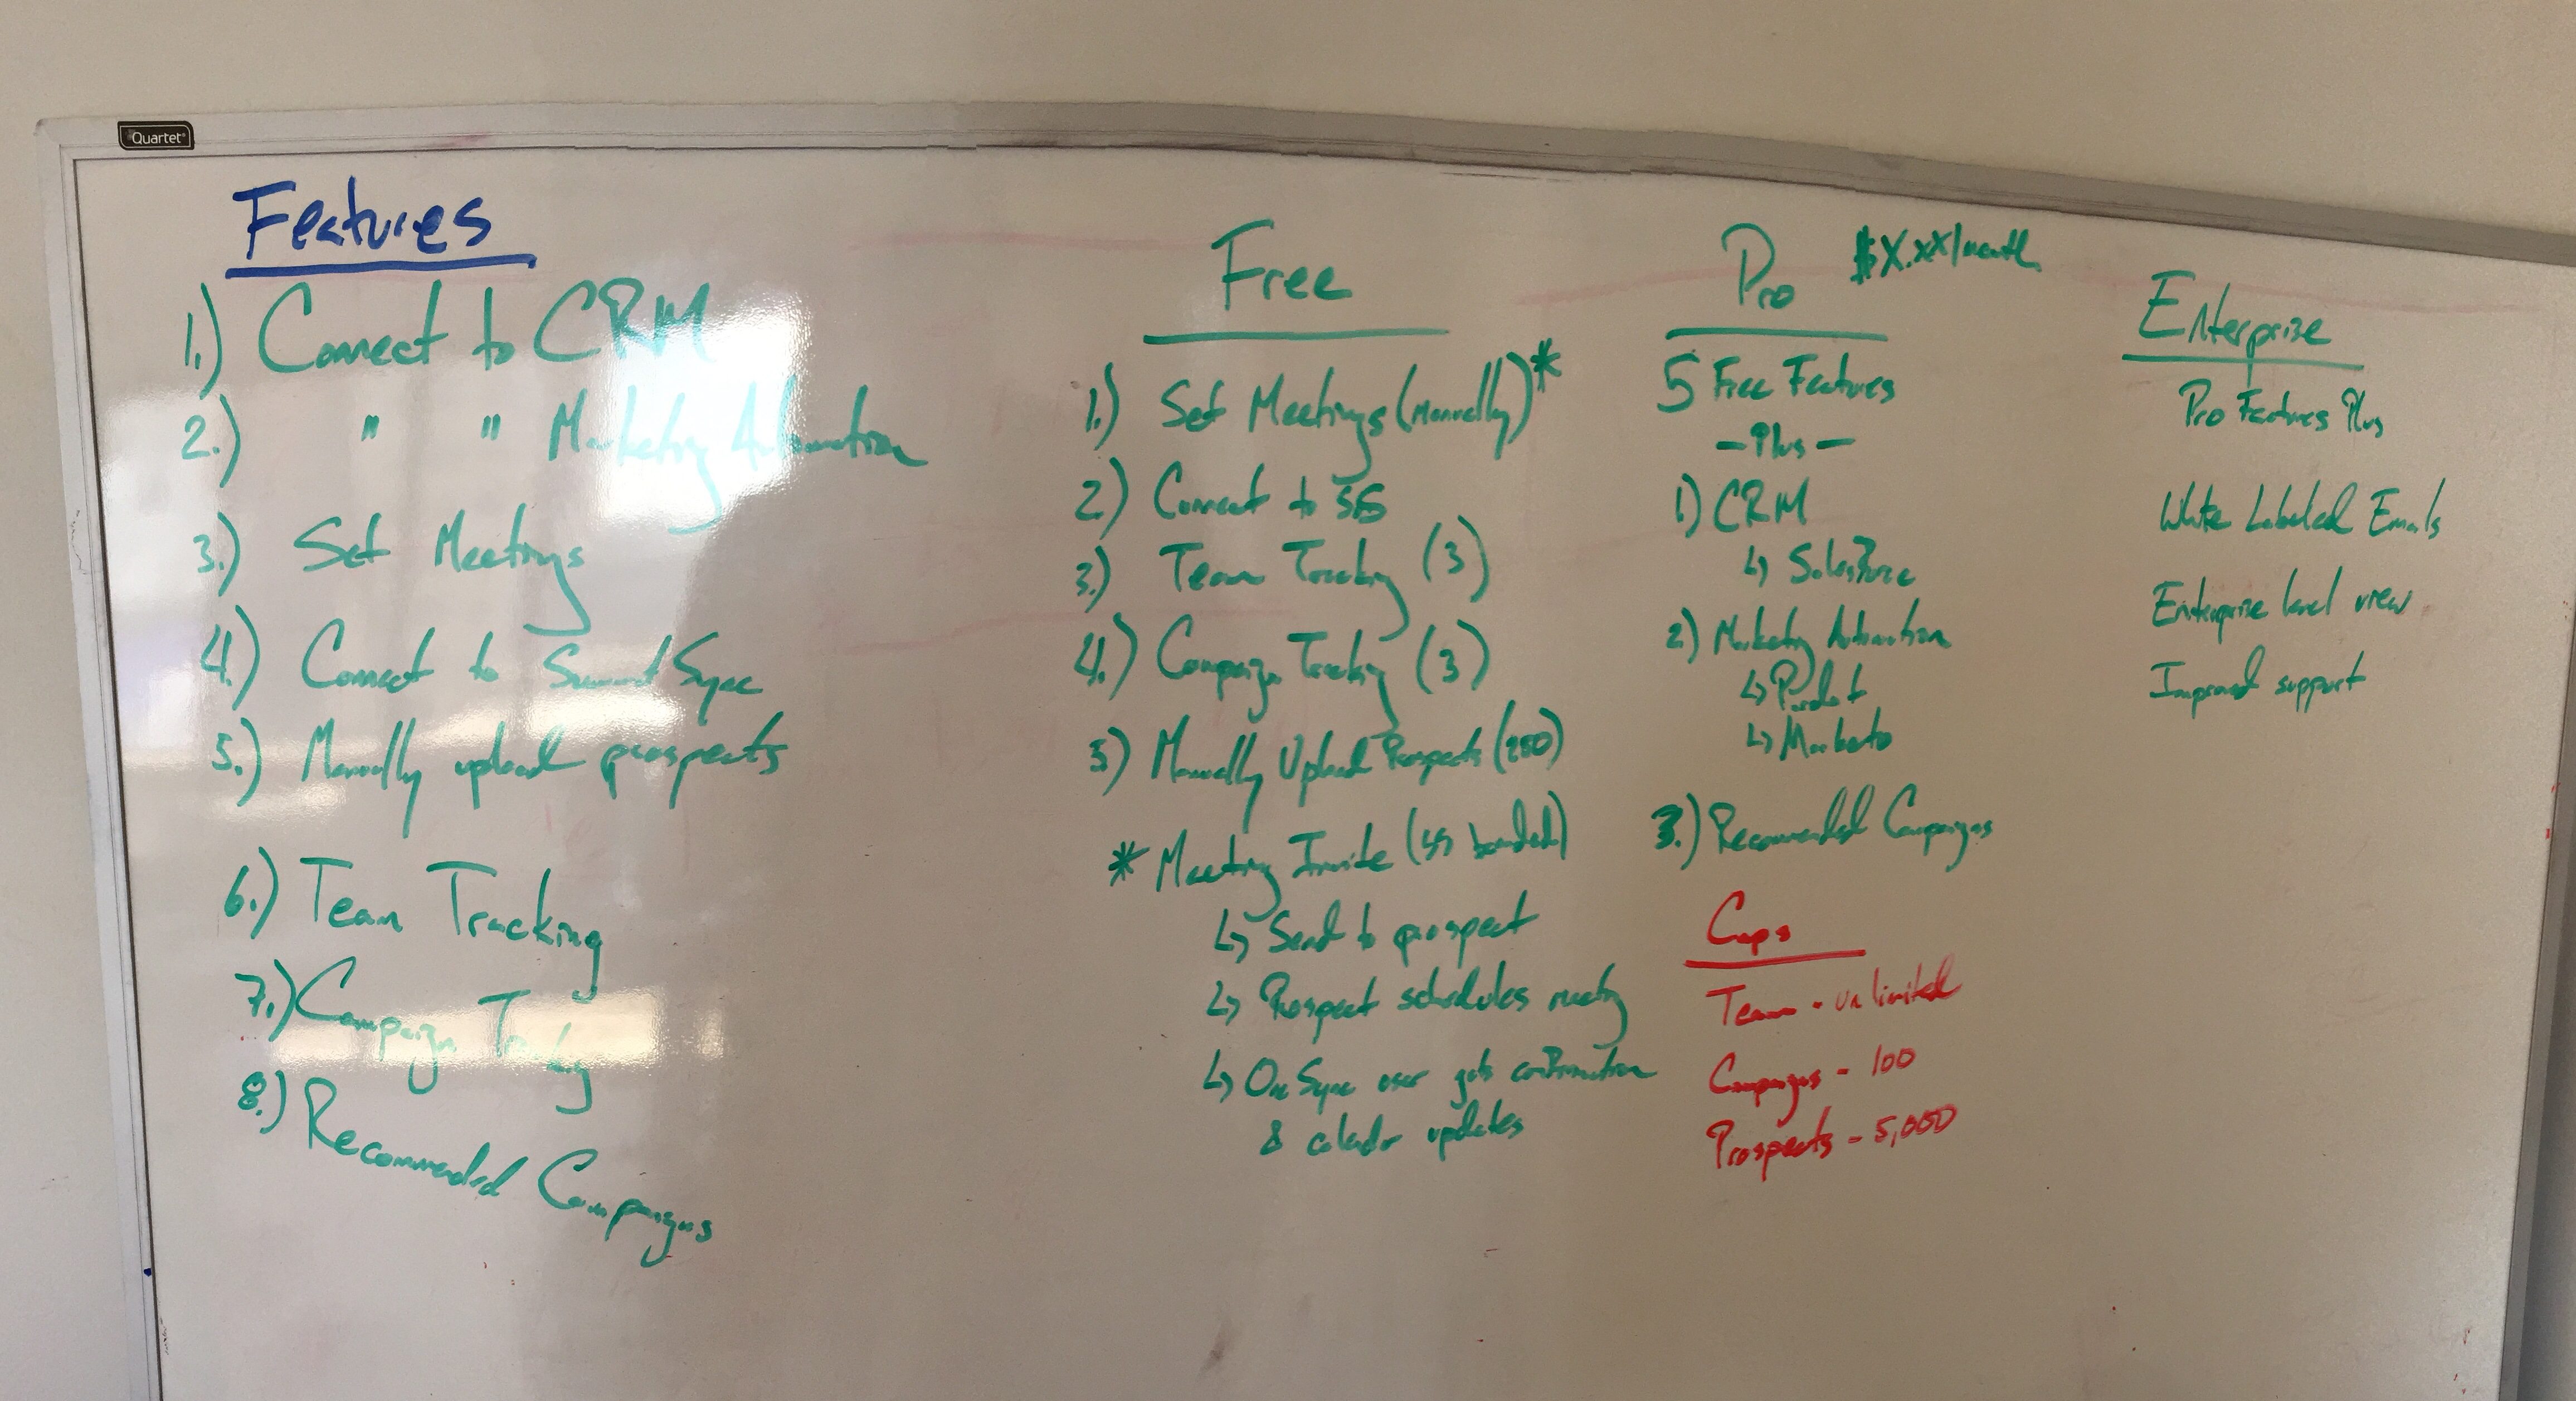 Quartet
Features
1.) Connect to CRM
2.) " " Marketing Automation
3.) Set Meetings
4.) Connect to Summit Sync
5.) Manually upload prospects
6.) Team Tracking
7.) Campaign Tracking
8.) Recommended Campaigns
Free
1.) Set Meetings (Manually)*
2) Connect to SS
3.) Team Tracking (3)
4.) Campaign Tracking (3)
5) Manually Upload Prospects (250)
* Meeting Invite (SS branded)
↳ Send to prospect
↳ Prospect schedules meeting
↳ Sync user gets confirmation
& calendar updates
Pro $X.XX/month
5 Free Features
- Plus -
1) CRM
↳ Salesforce
2) Marketing Automation
↳ Pardot
↳ Marketo
3.) Recommended Campaigns
Caps
Team - unlimited
Campaigns - 100
Prospects - 5,000
Enterprise
Pro Features Plus
White Labeled Emails
Enterprise level view
Improved support